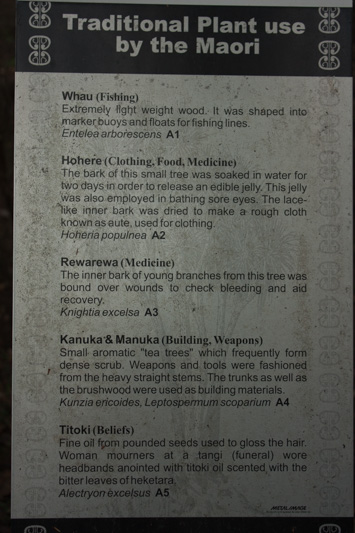 Traditional Plant use
by the Maori
Whau (Fishing)
Extremely light weight wood. It was shaped into
marker buoys and floats for fishing lines.
Entelea arborescens A1
Hohere (Clothing, Food, Medicine)
The bark of this small tree was soaked in water for
two days in order to release an edible jelly. This jelly
was also employed in bathing sore eyes. The lace-
like inner bark was dried to make a rough cloth
known as aute, used for clothing.
Hoheria populnea A2
Rewarewa (Medicine)
The inner bark of young branches from this tree was
bound over wounds to check bleeding and aid
recovery.
Knightia excelsa A3
Kanuka & Manuka (Building, Weapons)
Small aromatic "tea trees" which frequently form
dense scrub. Weapons and tools were fashioned
from the heavy straight stems. The trunks as well as
the brushwood were used as building materials.
Kunzia ericoides, Leptospermum scoparium A4
Titoki (Beliefs)
Fine oil from pounded seeds used to gloss the hair.
Woman mourners at a tangi (funeral) wore
headbands anointed with titoki oil scented with the
bitter leaves of heketara.
Alectryon excelsus A5
METAL IMAGE